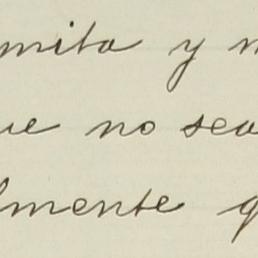 mita y m
ue no sea
lmente q